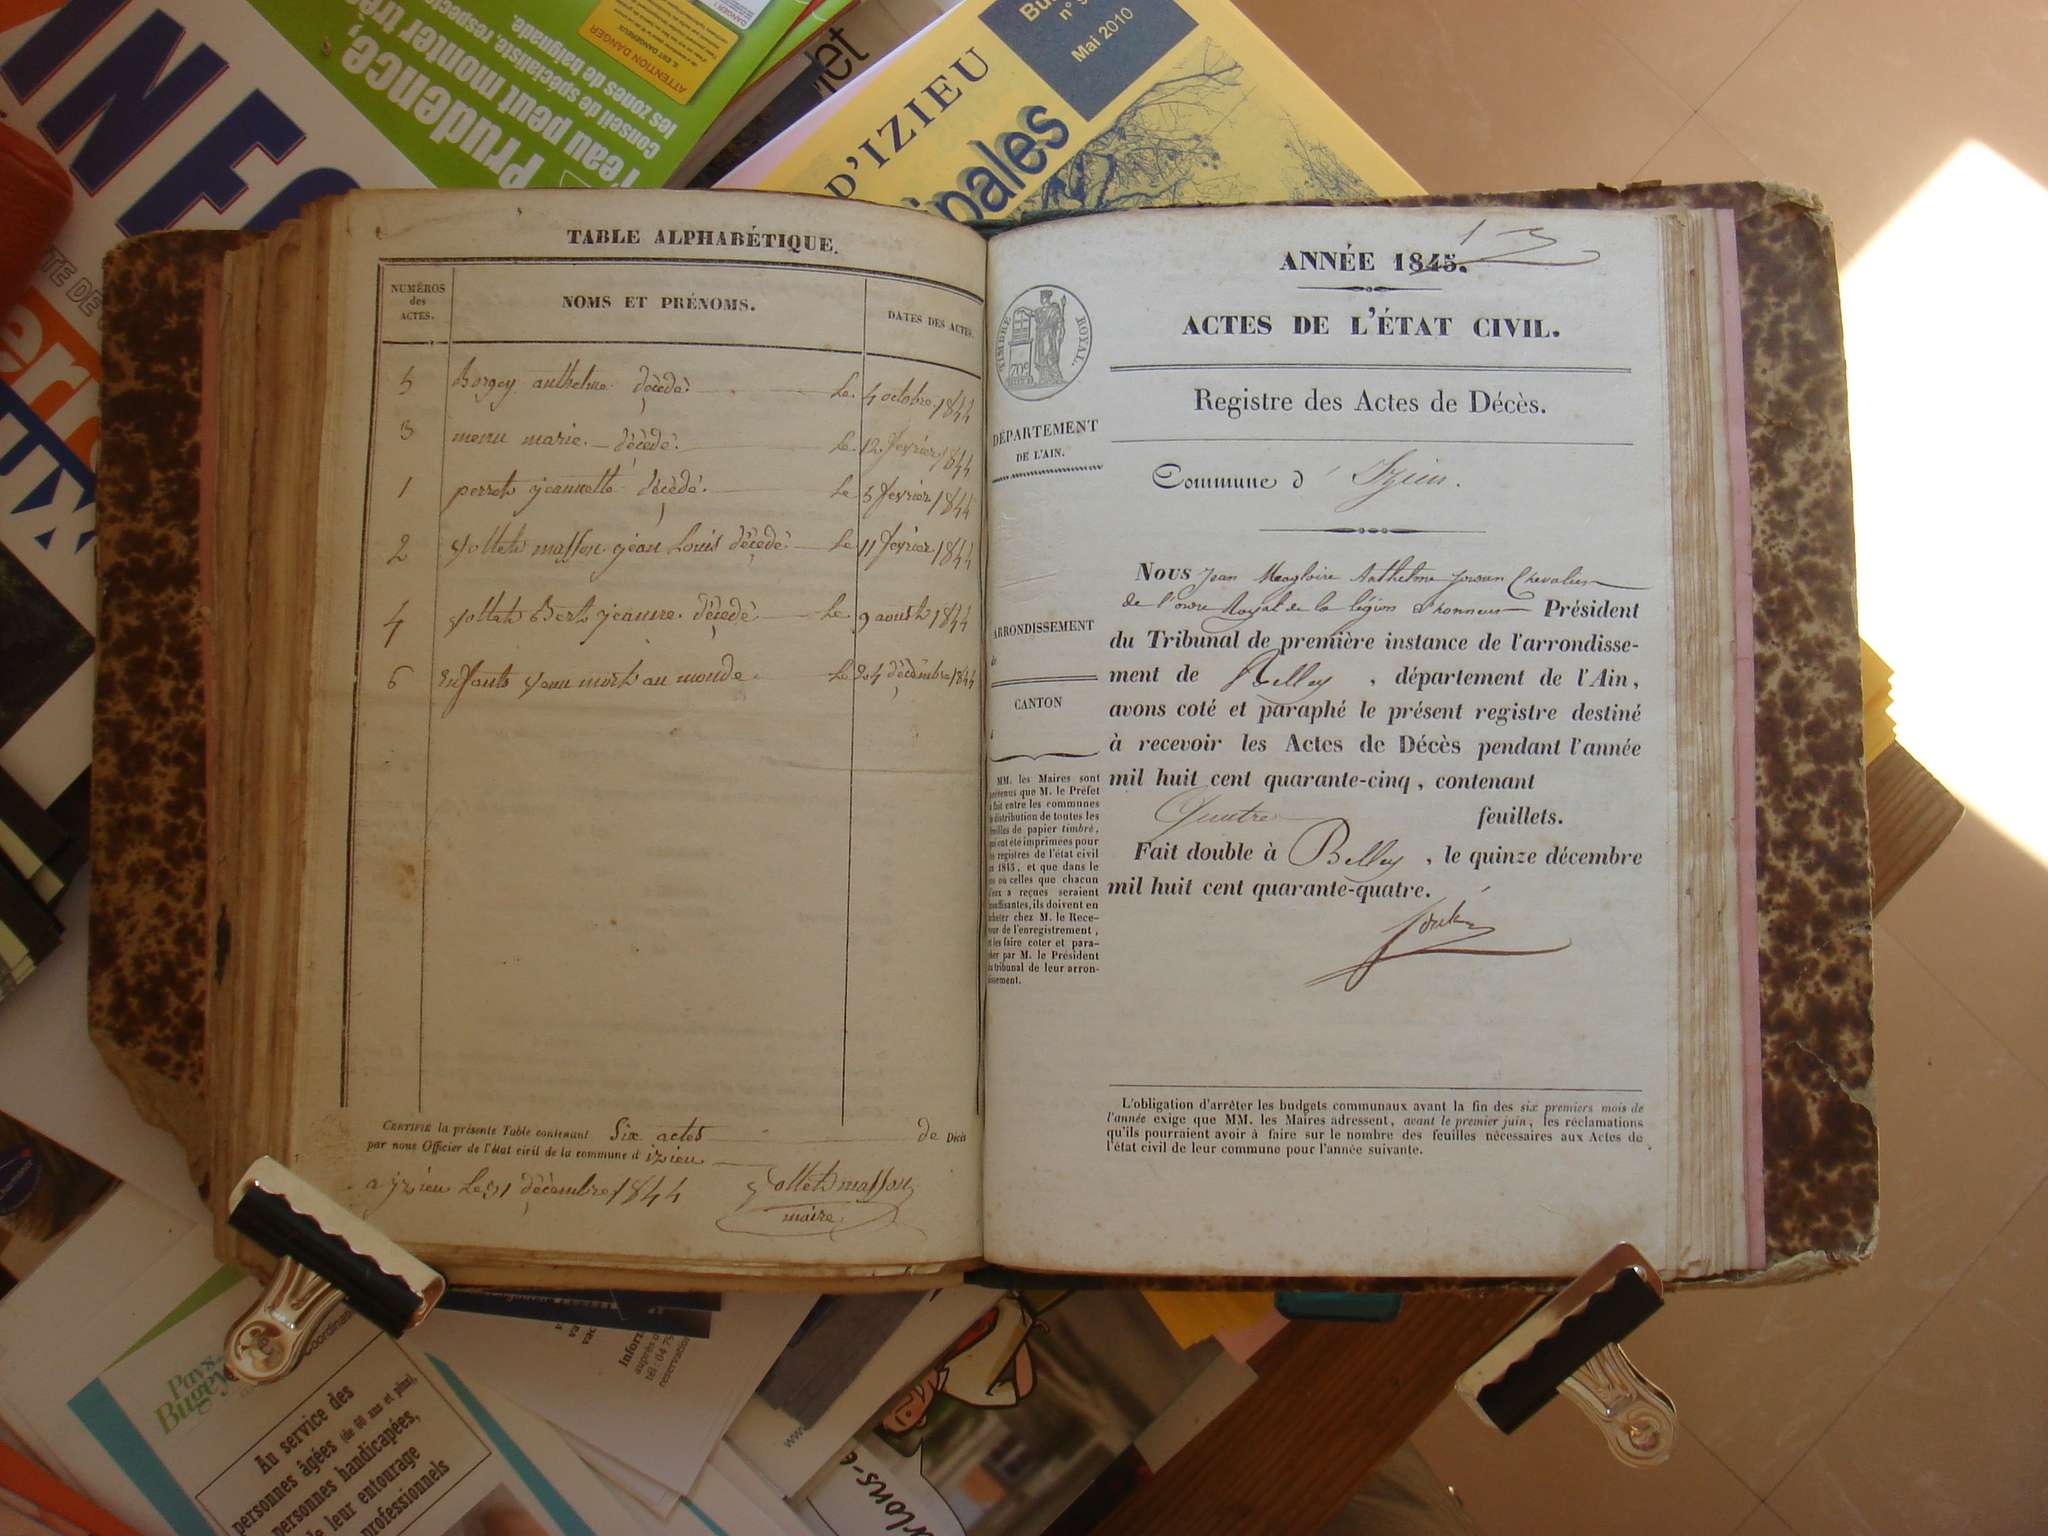 INFO
Prudence,
l'eau peut monter très
Conseil de spécialiste, respecte
les zones de baignade.
ATTENTION DANGER
D'IZIEU
ipales
n° 9
Mai 2010
TABLE ALPHABÉTIQUE.
NUMÉROS des ACTES.
NOMS ET PRÉNOMS.
DATES DES ACTES.
5 Borgey anthelme décédé Le 4 octobre 1844
3 menu marie décédé Le 12 fevrier 1844
1 perret jeannette décédé Le 5 fevrier 1844
2 masson jean Louis décédé Le 11 fevrier 1844
4 jeanne décédé Le 9 aoust 1844
6 Enfants mort au monde Le 24 décembre 1844
CERTIFIÉ la présente Table contenant Six actes de Décès
par nous Officier de l'état civil de la commune d'izieu
a yzieu Le 31 décembre 1844
maire
ANNÉE 1845.
ACTES DE L'ÉTAT CIVIL.
TIMBRE ROYAL
70c
Registre des Actes de Décès.
DÉPARTEMENT
DE L'AIN.
Commune d'Izieu.
ARRONDISSEMENT
de
CANTON
Nous Jean Magloire Anthelme Chevalier
de l'ordre Royal de la légion d'honneur Président
du Tribunal de première instance de l'arrondisse-
ment de Belley, département de l'Ain,
avons coté et paraphé le présent registre destiné
à recevoir les Actes de Décès pendant l'année
mil huit cent quarante-cinq, contenant
Quatre feuillets.
Fait double à Belley, le quinze décembre
mil huit cent quarante-quatre.
MM. les Maires sont
prévenus que M. le Préfet
a fait entre les communes
la distribution de toutes les
feuilles de papier timbré,
qui ont été imprimées pour
les registres de l'état civil
en 1845, et que dans le
cas où celles que chacun
d'eux a reçues seraient
insuffisantes, ils doivent en
acheter chez M. le Rece-
veur de l'enregistrement,
et les faire coter et para-
pher par M. le Président
du tribunal de leur arron-
dissement.
L'obligation d'arrêter les budgets communaux avant la fin des six premiers mois de
l'année exige que MM. les Maires adressent, avant le premier juin, les réclamations
qu'ils pourraient avoir à faire sur le nombre des feuilles nécessaires aux Actes de
l'état civil de leur commune pour l'année suivante.
Pays
Bugey
Coordination
Au service des
personnes âgées (de 60 ans et plus),
personnes handicapées,
de leur entourage
professionnels